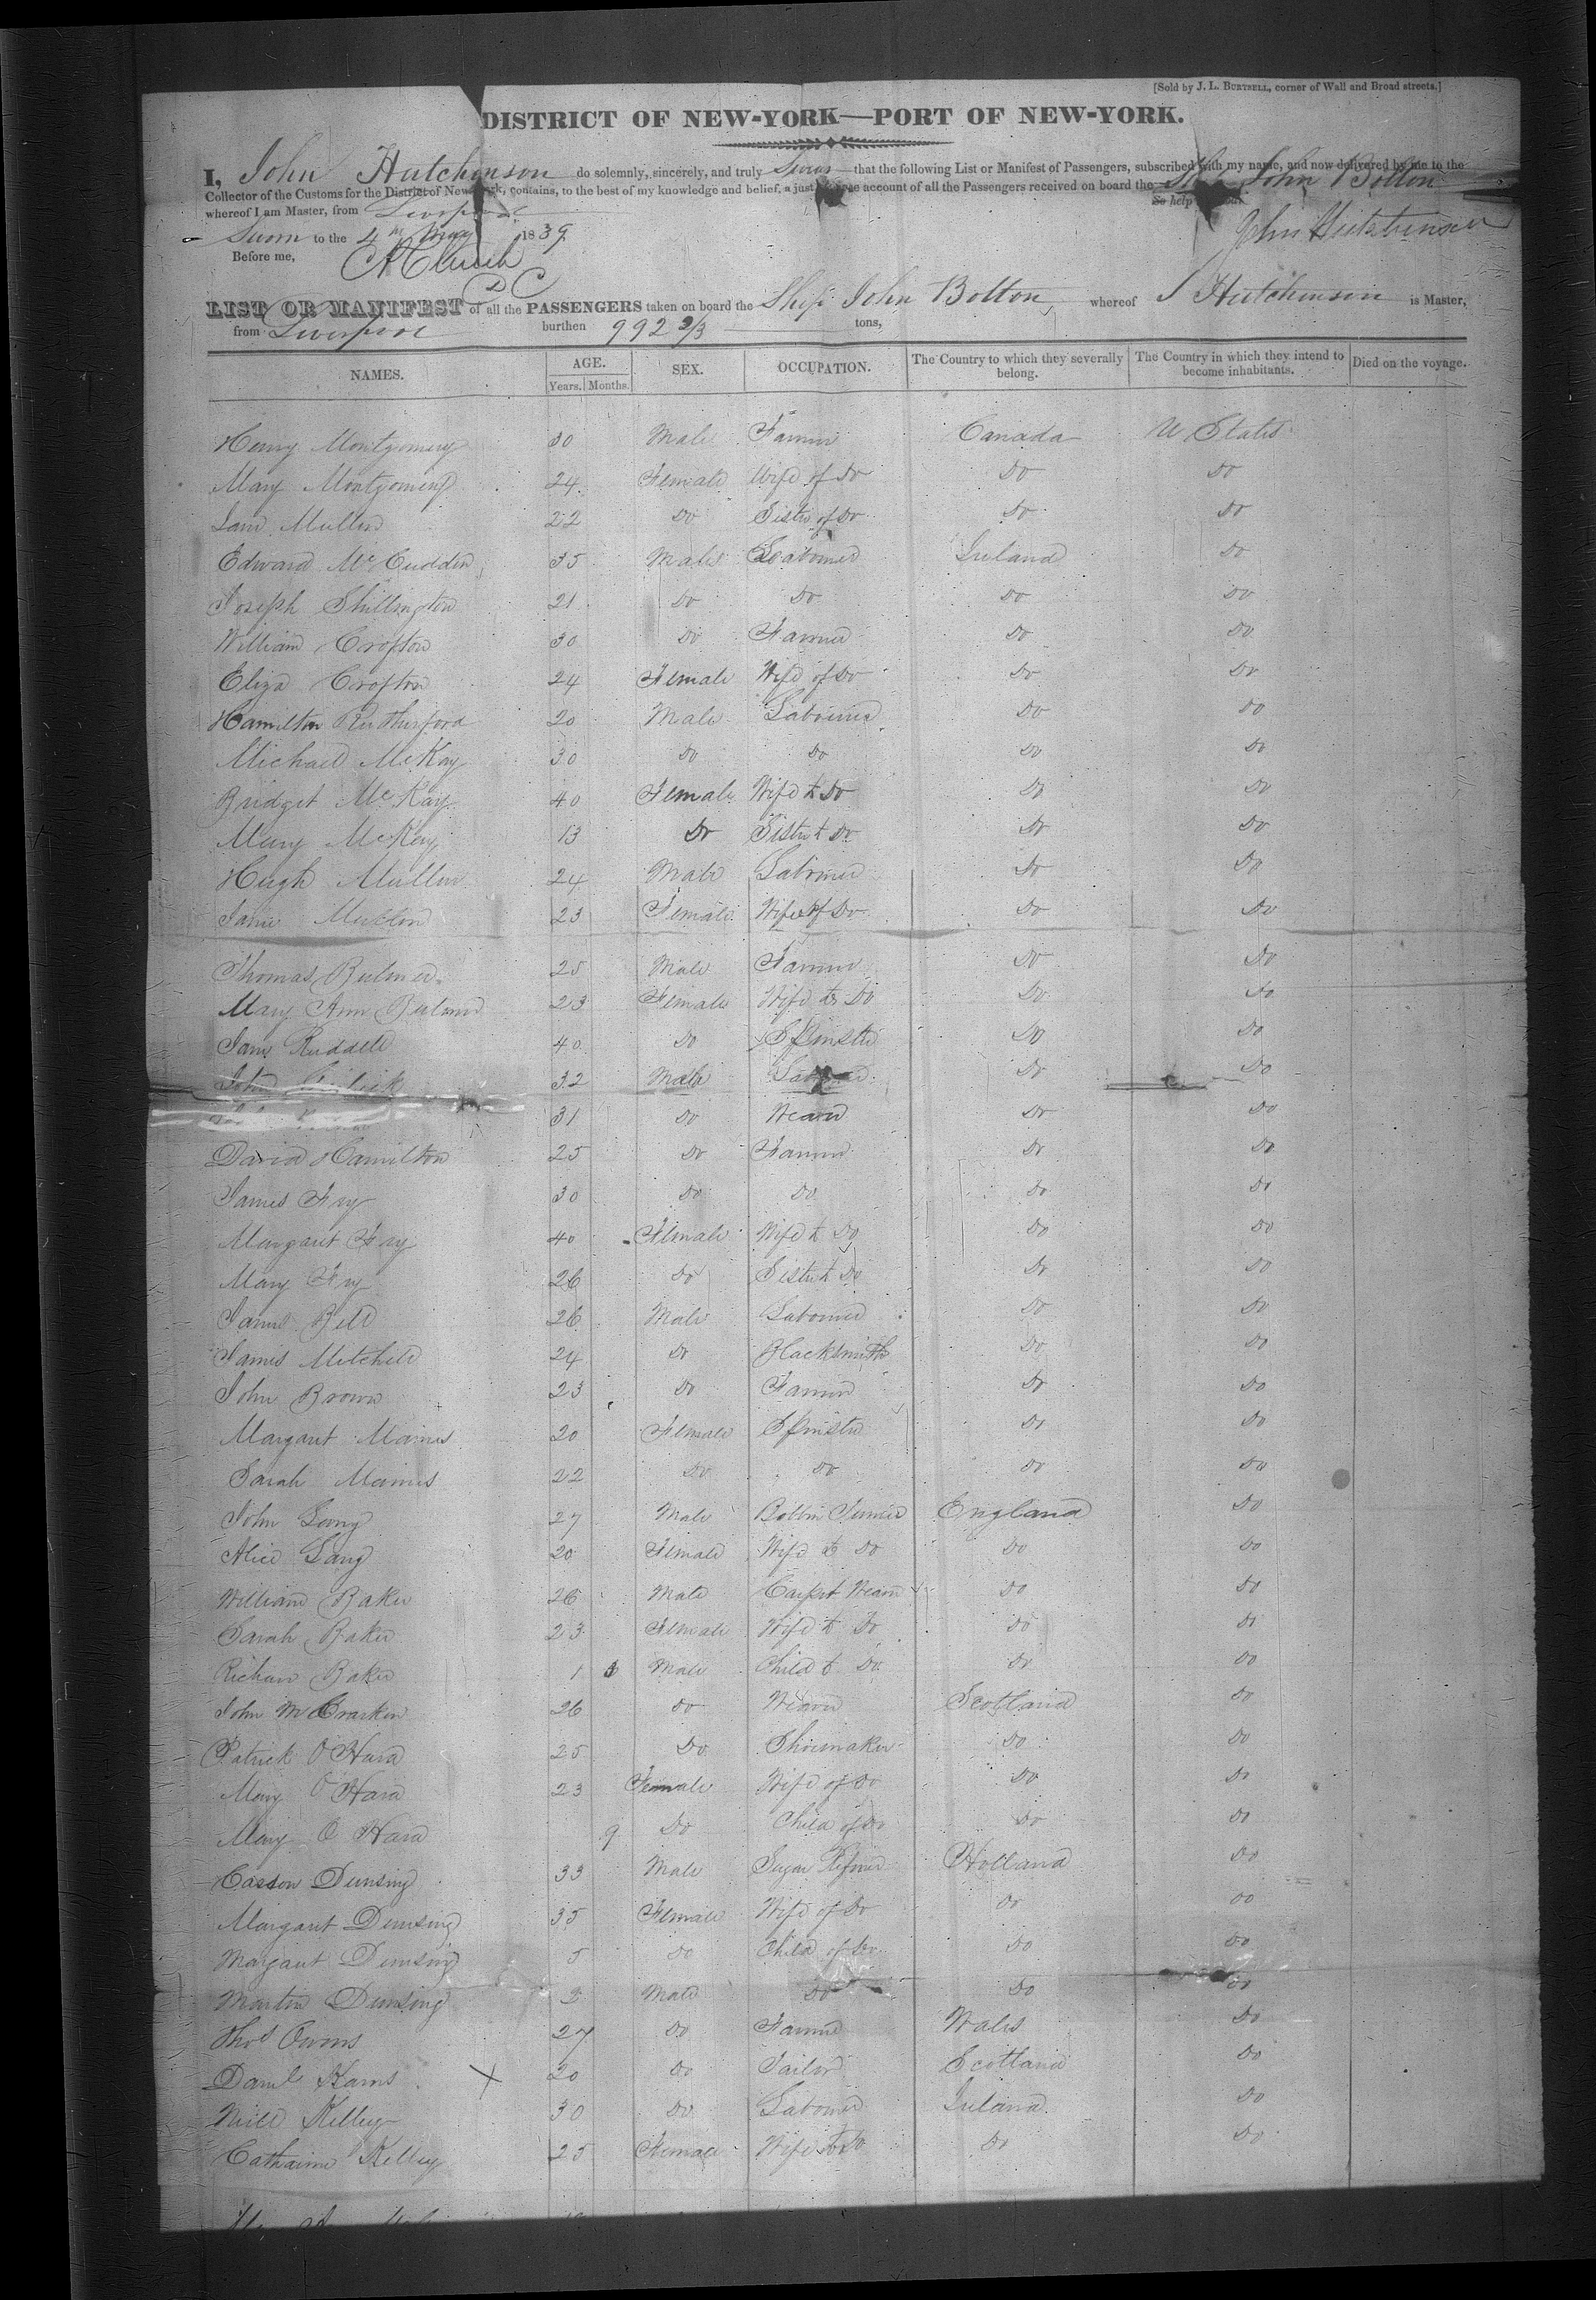 [Sold by J. L. BURTSELL, corner of Wall and Broad streets.]
DISTRICT OF NEW-YORK—PORT OF NEW-YORK.
I, John Hutchinson do solemnly, sincerely, and truly Swear that the following List or Manifest of Passengers, subscribed with my name, and now delivered by me to the
Collector of the Customs for the District of New York, contains, to the best of my knowledge and belief, a just account of all the Passengers received on board the Ship John Bolton
whereof I am Master, from Liverpool So help
Sworn to the 4th May 1839 John Hutchinson
Before me,
LIST OR MANIFEST of all the PASSENGERS taken on board the Ship John Bolton whereof J Hutchinson is Master,
from Liverpool burthen 992 2/3 tons,
NAMES. AGE. Years. Months. SEX. OCCUPATION. The Country to which they severally belong. The Country in which they intend to become inhabitants. Died on the voyage.
Henry Montgomery 30 Male Farmer Canada U States
Mary Montgomery 24 Female Wife of Do Do Do
Mullen 22 Do Sister of Do Do Do
Edward McCudden 35 Male Labourer Ireland Do
Joseph Shillington 21 Do Do Do Do
William Crofton 30 Do Farmer Do Do
Eliza Crofton 24 Female Wife of Do Do Do
Hamilton Rutherford 20 Male Labourer Do Do
Michael McKay 30 Do Do Do Do
Bridget McKay 40 Female Wife to Do Do Do
Mary McKay 13 Do Sister to Do Do Do
Hugh Mullen 24 Male Labourer Do Do
Jane Mullen 23 Female Wife of Do Do Do
Thomas Bulmer 25 Male Farmer Do Do
Mary Ann Bulmer 23 Female Wife to Do Do Do
Jane Ruddell 40 Do Spinster Do Do
John 32 Male Labourer Do Do
31 Do Weaver Do Do
David Hamilton 25 Do Farmer Do Do
James Fry 30 Do Do Do Do
Margaret Fry 40 Female Wife to Do Do Do
Mary Fry 26 Do Sister to Do Do Do
James Bell 26 Male Labourer Do Do
James Mitchell 24 Do Blacksmith Do Do
John Brown 23 Do Farmer Do Do
Margaret Maines 20 Female Spinster Do Do
Sarah Maines 22 Do Do Do Do
John Lang 27 Male Bobbin Turner England Do
Alice Lang 20 Female Wife to Do Do Do
William Baker 26 Male Carpet Weaver Do Do
Sarah Baker 23 Female Wife to Do Do Do
Baker 1 Male Child to Do Do Do
John McCracken 26 Do Weaver Scotland Do
Patrick O'Hara 25 Do Shoemaker Do Do
Mary O'Hara 23 Female Wife of Do Do Do
Mary O'Hara 9 Do Child of Do Do Do
Casson Dunsing 33 Male Sugar Refiner Holland Do
Margaret Dunsing 35 Female Wife of Do Do Do
Margaret Dunsing 5 Do Child of Do Do Do
Martin Dunsing 2 Male Do Do Do
Thos Owens 27 Do Farmer Wales Do
Danl Karns X 20 Do Tailor Scotland Do
Neill Kelley 30 Do Labourer Ireland Do
Catharine Kelley 25 Female Wife to Do Do Do